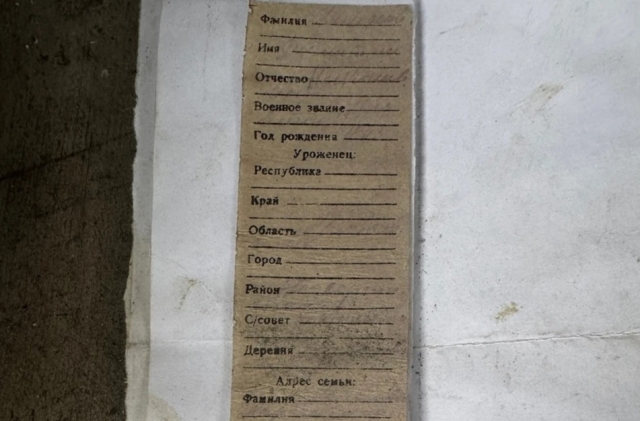 Фамилия
Имя
Отчество
Военное звание
Год рождения
Уроженец:
Республика
Край
Область
Город
Район
С/совет
Деревня
Адрес семьи:
Фамилия